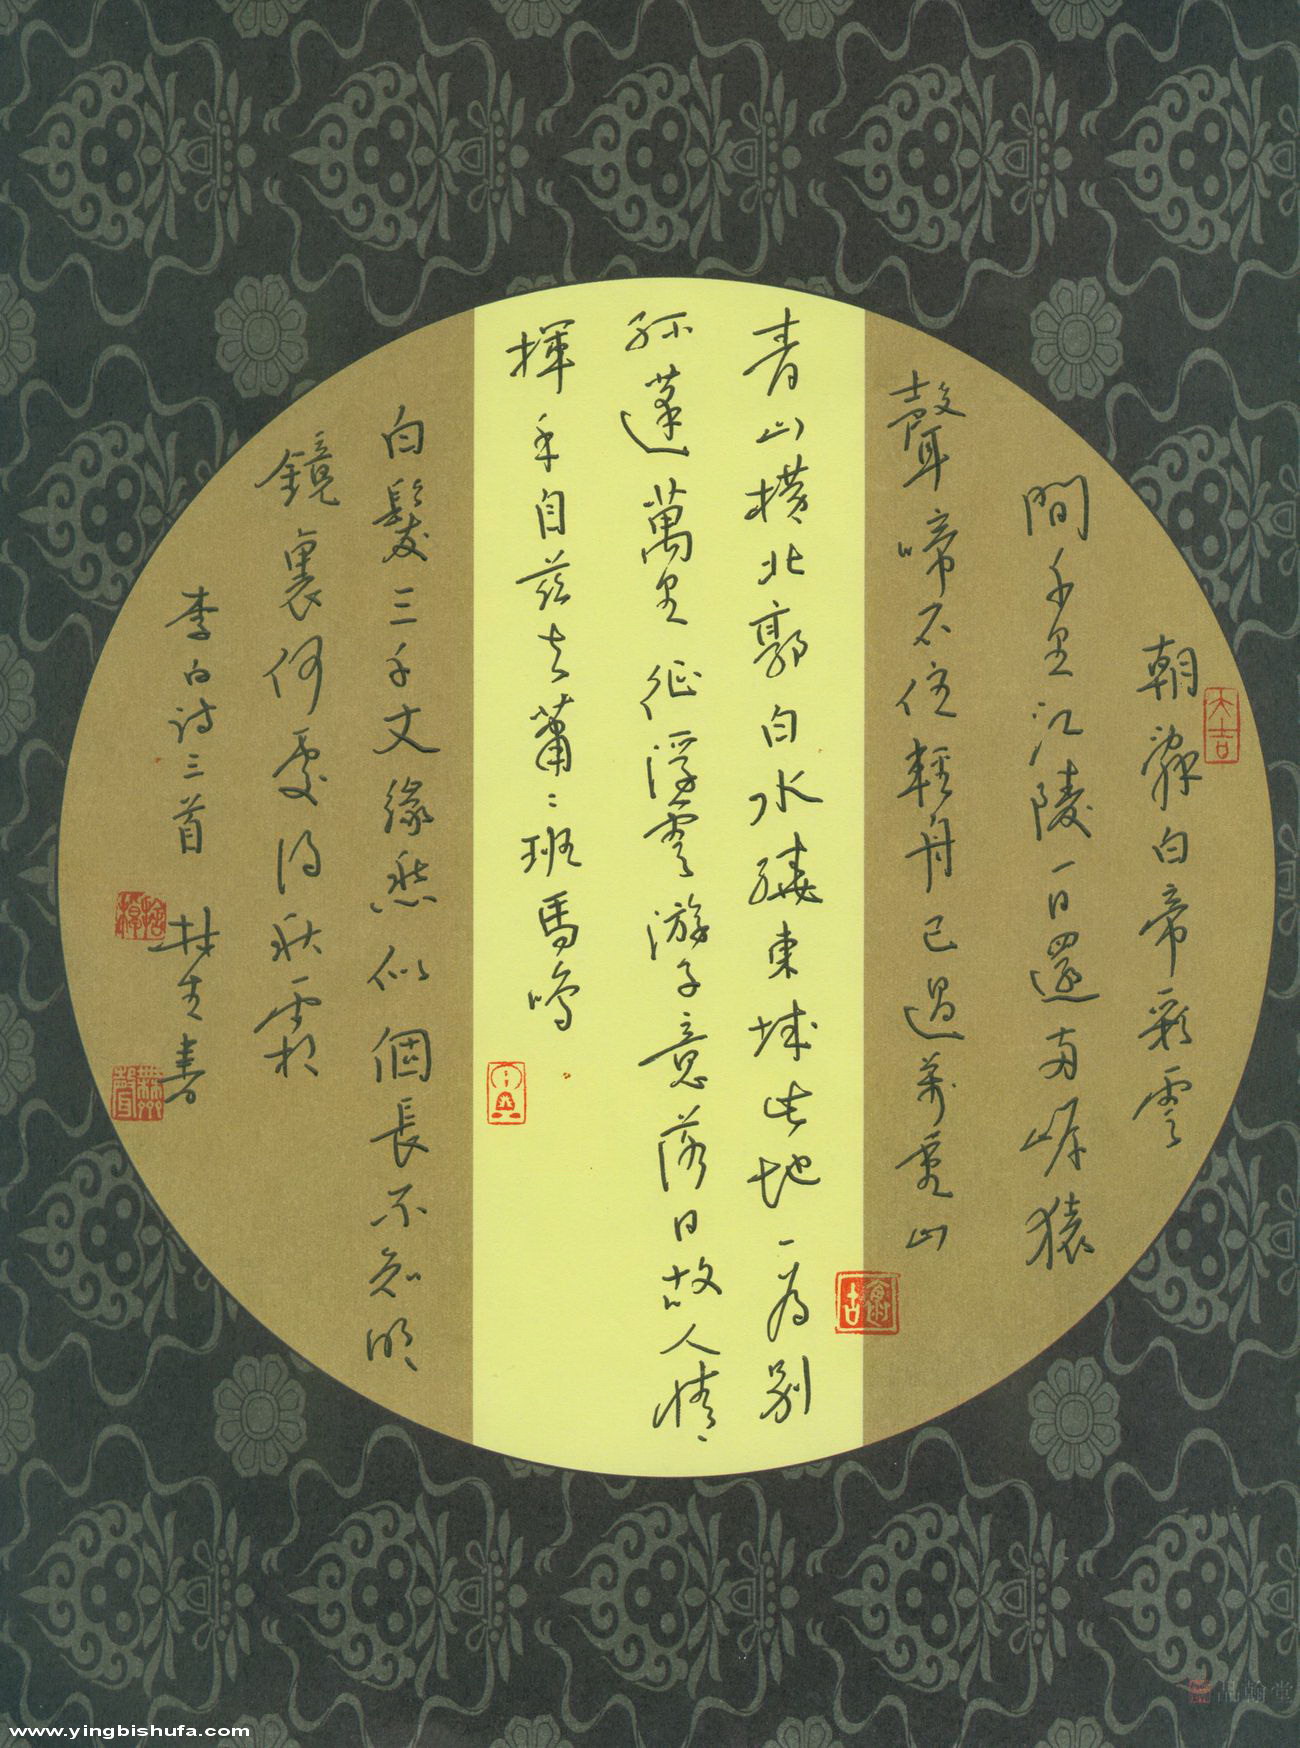 朝辭白帝彩雲
間千里江陵一日還兩岸猿
聲啼不住輕舟已過萬重山
青山橫北郭白水繞東城此地一為別
孤蓬萬里征浮雲游子意落日故人情
揮手自茲去蕭〻班馬鳴
白髮三千丈緣愁似個長不知明
鏡裏何處得秋霜
李白詩三首 林書
大吉
www.yingbishufa.com
品翰堂